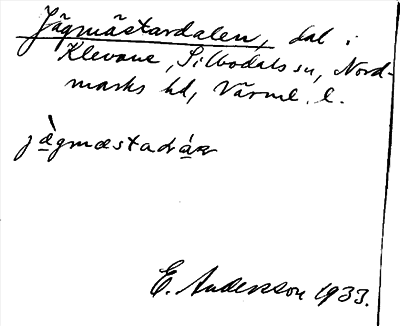 Jägmästardalen, dal i
Klevane, Silbodals sn, Nord-
marks hd, Värml. l.
E. Andersson 1933.